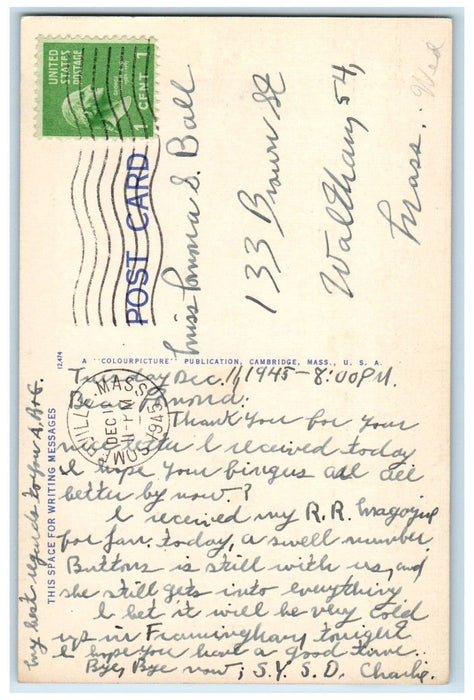 UNITED
STATES
POSTAGE
1 CENT 1
POST CARD
Miss Ramona S. Ball
133 Brown St
Waltham 54,
Mass.
Wed
12,474
A "COLOURPICTURE" PUBLICATION, CAMBRIDGE, MASS., U. S. A.
THIS SPACE FOR WRITING MESSAGES
SOMERVILLE MASS
DEC 12
11 - PM
1945
Tuesday Dec. 11, 1945 - 8:00 P.M.
Ramona:
Thank you for your
letter I received today
I hope your fingus are all
better by now?
I received my R. R. Magazine
for Jan. today, a swell number
Buttons is still with us, and
she still gets into everything
I bet it will be very cold
up in Framingham tonight
I hope you have a good time.
Bye, Bye now, S. Y. S. D. Charlie.
my best regards to you &